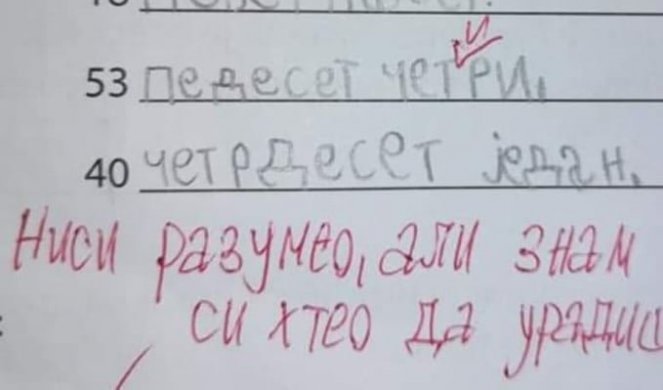 и
53 педесет четри.
40 четрдесет један.
Ниси разумео, али знам
си хтео да уради